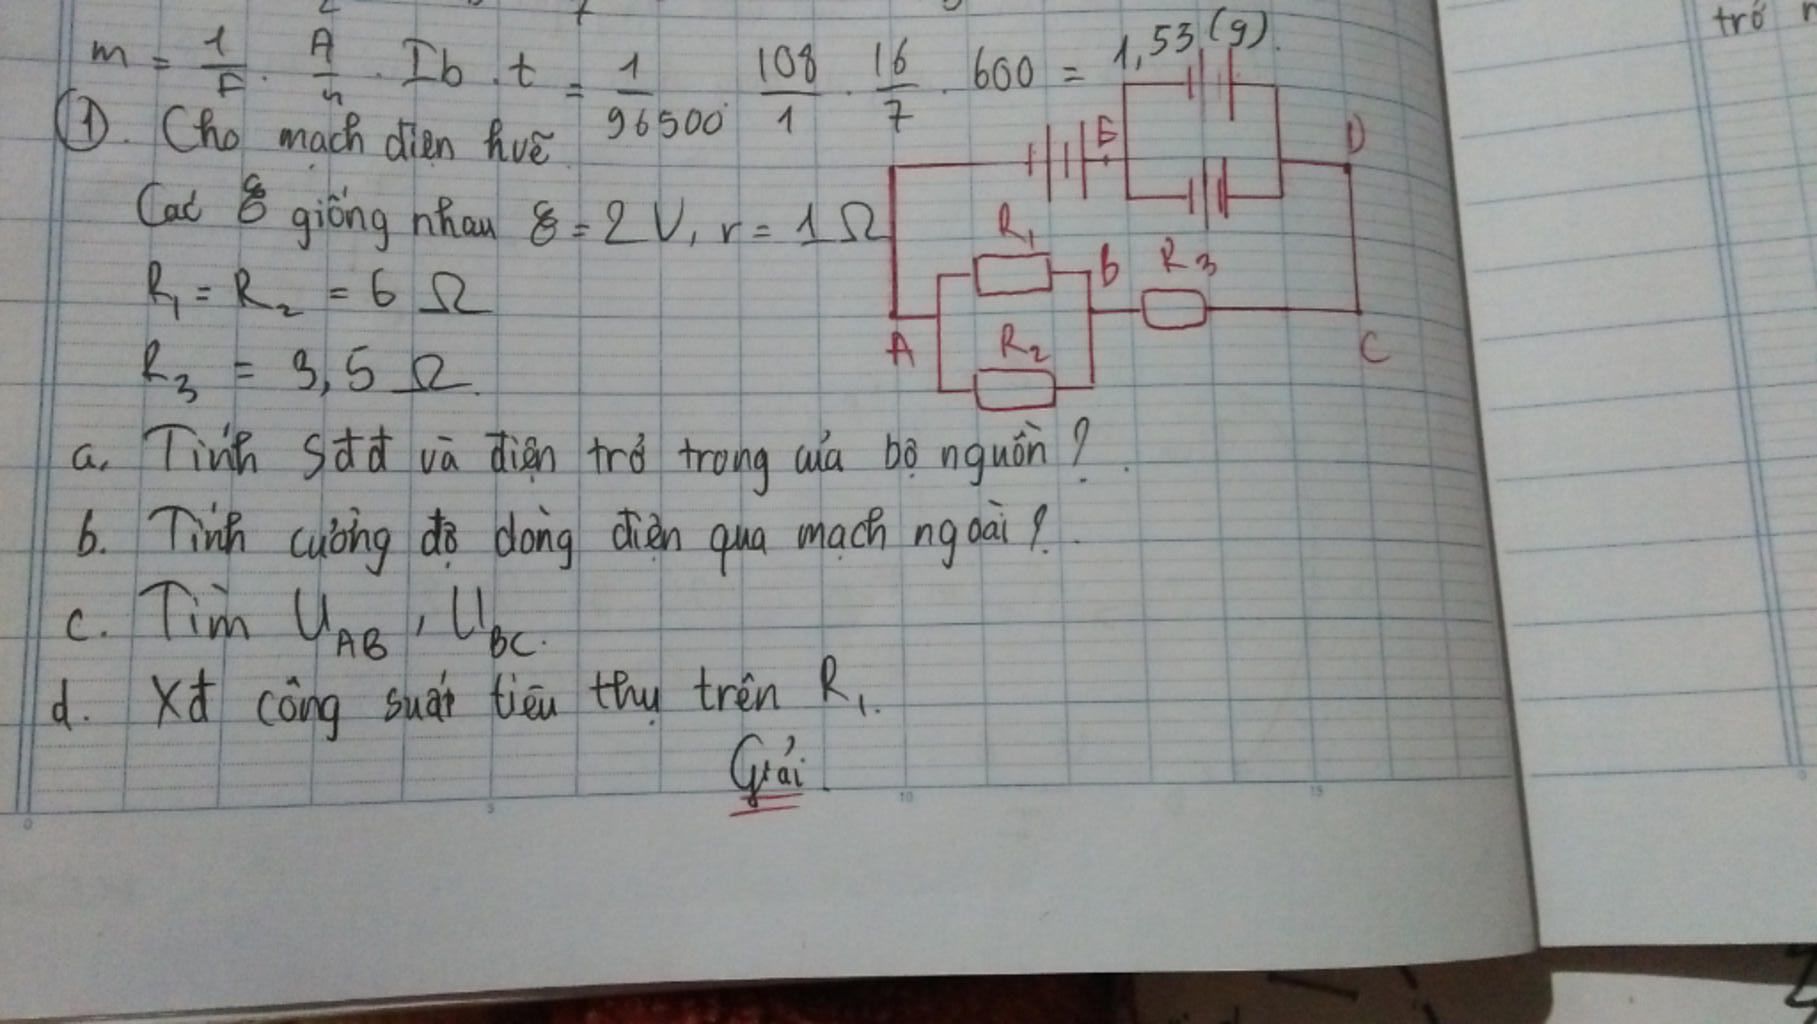 m = 1/F . A/n . Ib . t = 1/96500 . 108/1 . 16/7 . 600 = 1,53 (g).
①. Cho mạch điện hvẽ
Các ℰ giống nhau ℰ = 2 V, r = 1 Ω
R₁ = R₂ = 6 Ω
R₃ = 3,5 Ω.
E
D
R₁
B
R₃
A
R₂
C
a. Tính Sđđ và điện trở trong của bộ nguồn?
b. Tính cường độ dòng điện qua mạch ngoài?
c. Tìm U_AB, U_BC.
d. Xđ công suất tiêu thụ trên R₁.
Giải
trở
0 5 10 15